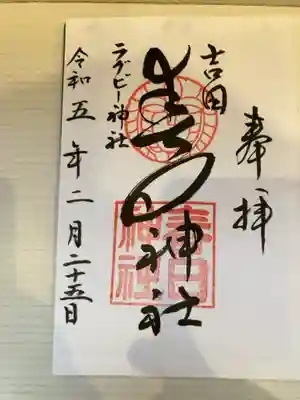 奉拝
吉田
春日神社
春日
神社
ラグビー神社
令和五年二月二十五日